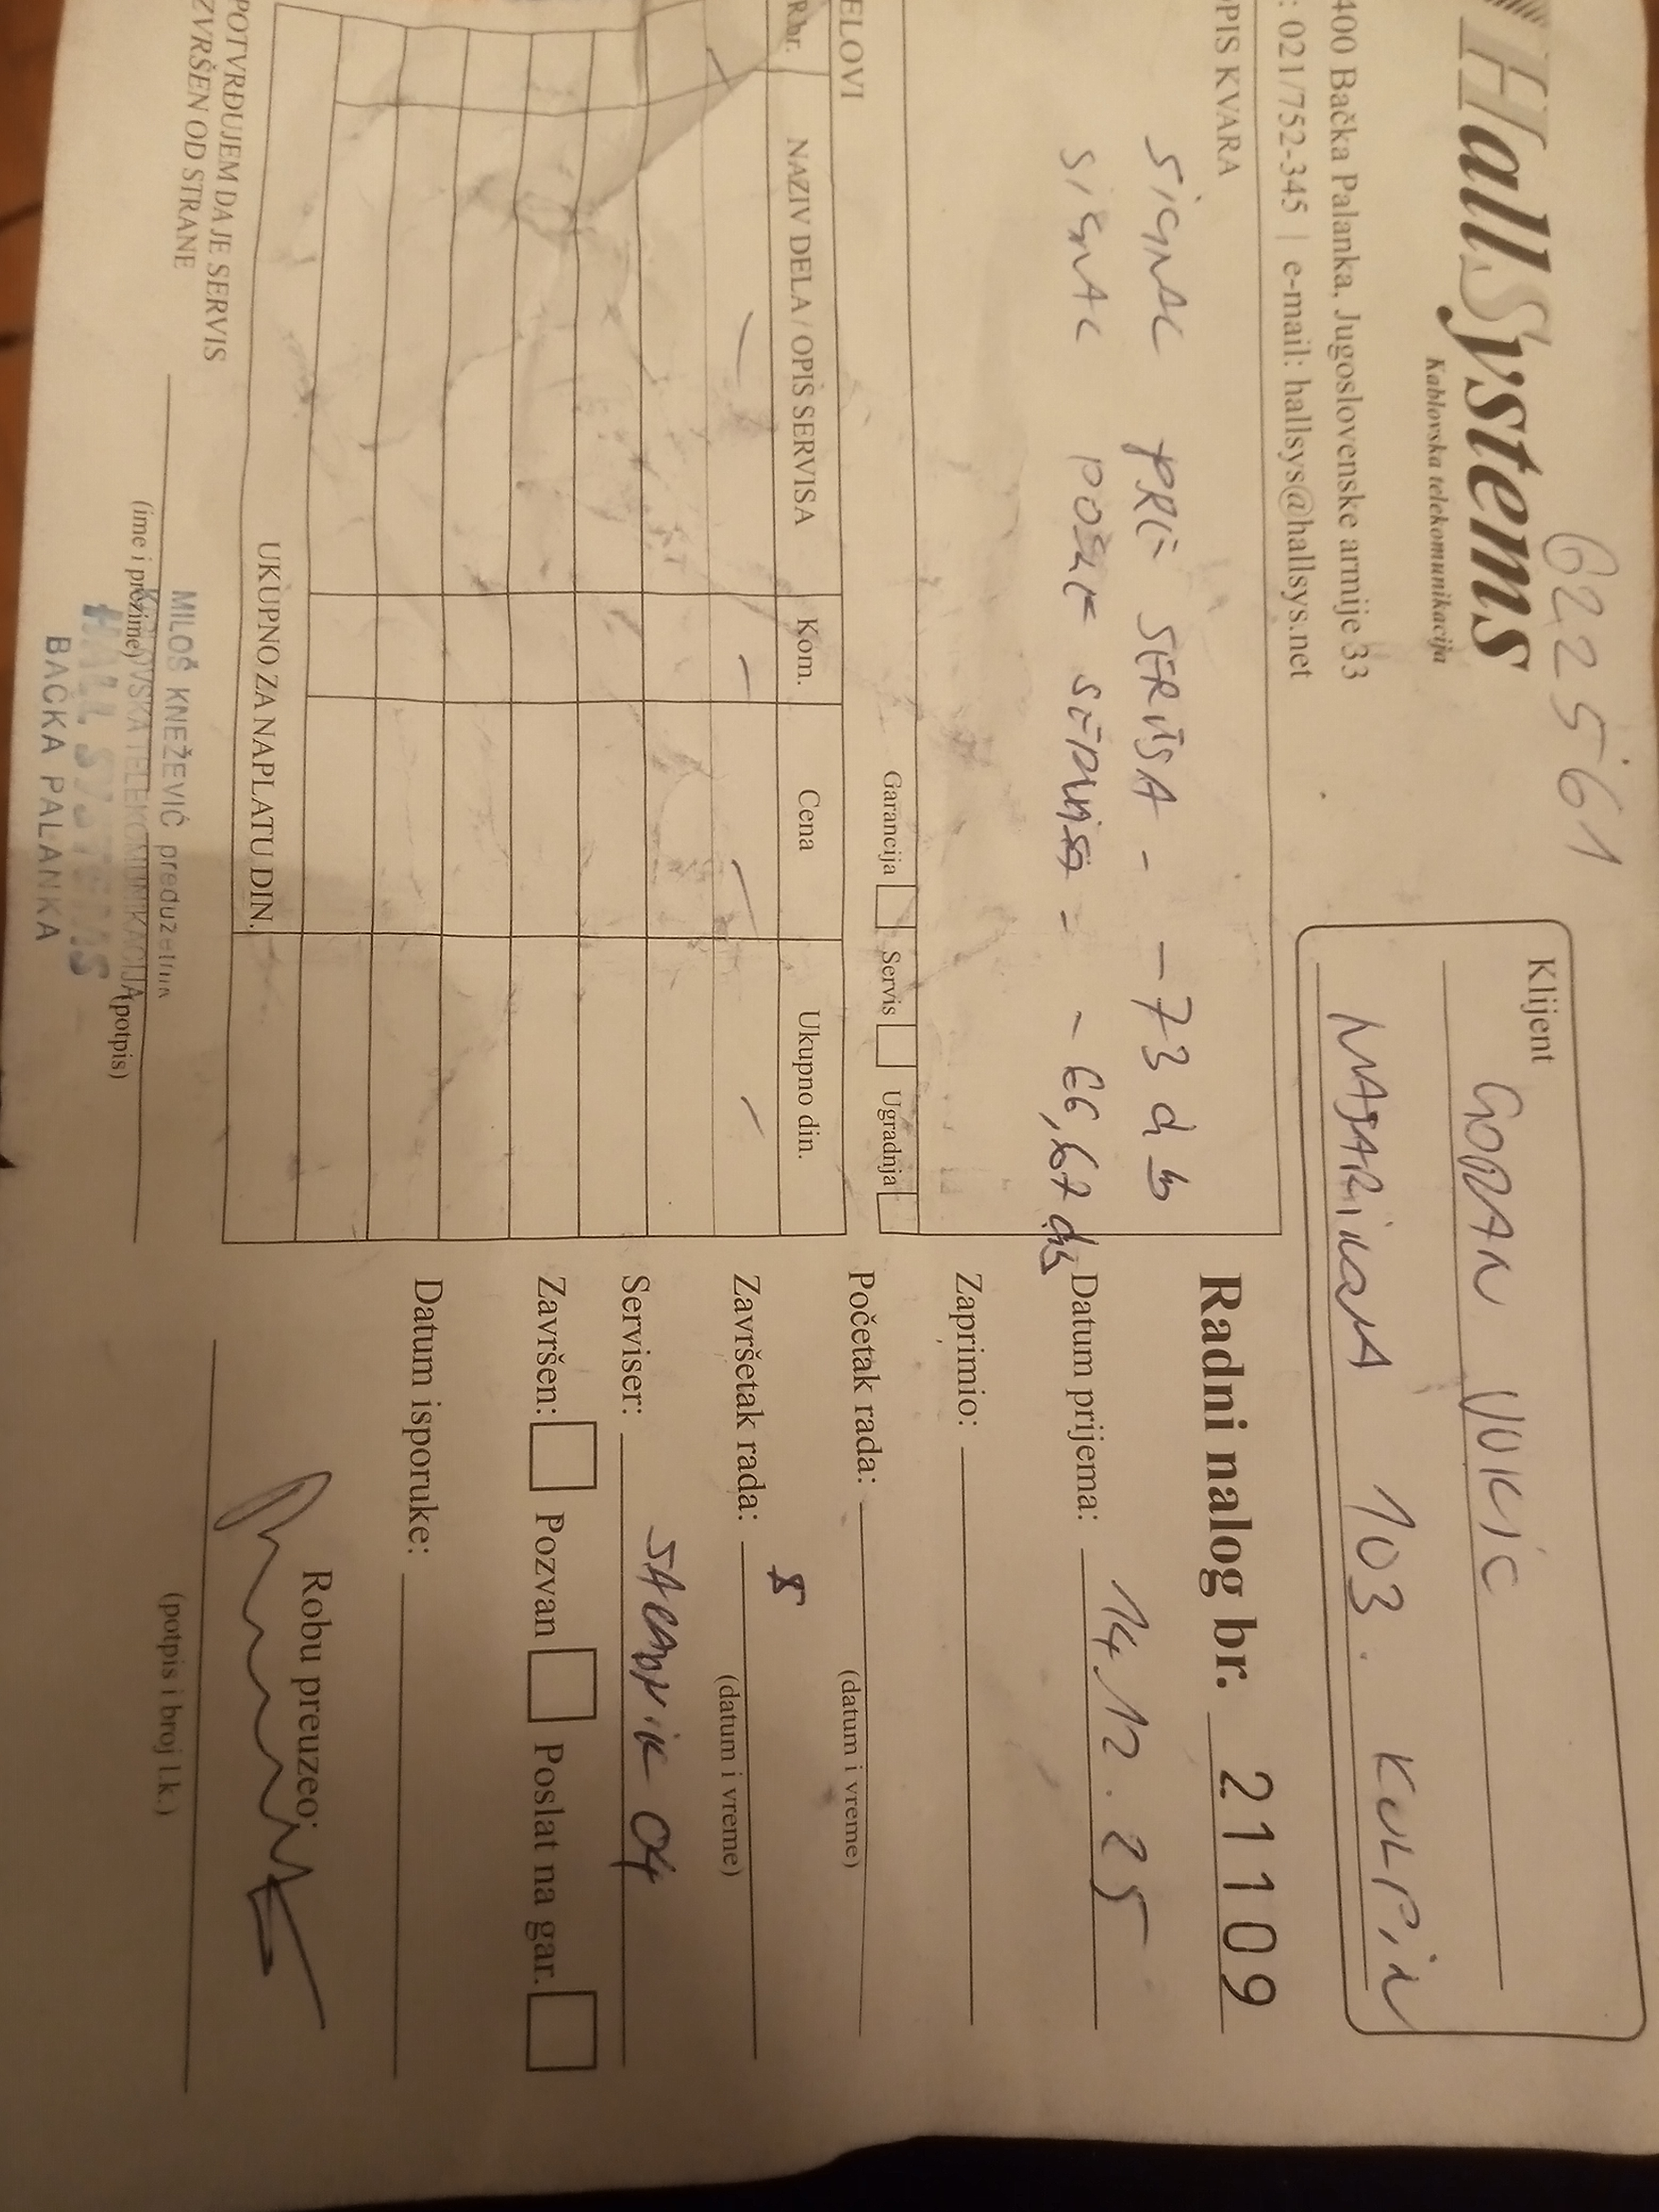 622561
HallSystems
Kablovska telekomunikacija
400 Bačka Palanka, Jugoslovenske armije 33
: 021/752-345 | e-mail: hallsys@hallsys.net
Klijent
GORAN VUKIC
103. KULPIN
OPIS KVARA
SIGNAL PRE SERVISA - -73 db
SIGNAL POSLE SERVISA - -66,67 db
Garancija Servis Ugradnja
ELOVI
R.br. NAZIV DELA / OPIS SERVISA Kom. Cena Ukupno din.
UKUPNO ZA NAPLATU DIN.
POTVRĐUJEM DA JE SERVIS
ZVRŠEN OD STRANE
(ime i prezime) (potpis)
MILOŠ KNEŽEVIĆ preduzetnik
KABLOVSKA TELEKOMUNIKACIJA
HALL SYSTEMS
BAČKA PALANKA
Radni nalog br. 21109
Datum prijema: 14.12.25
Zaprimio:
Početak rada:
(datum i vreme)
Završetak rada:
(datum i vreme)
Serviser: 04
Završen: Pozvan Poslat na gar.
Datum isporuke:
Robu preuzeo:
(potpis i broj l.k.)